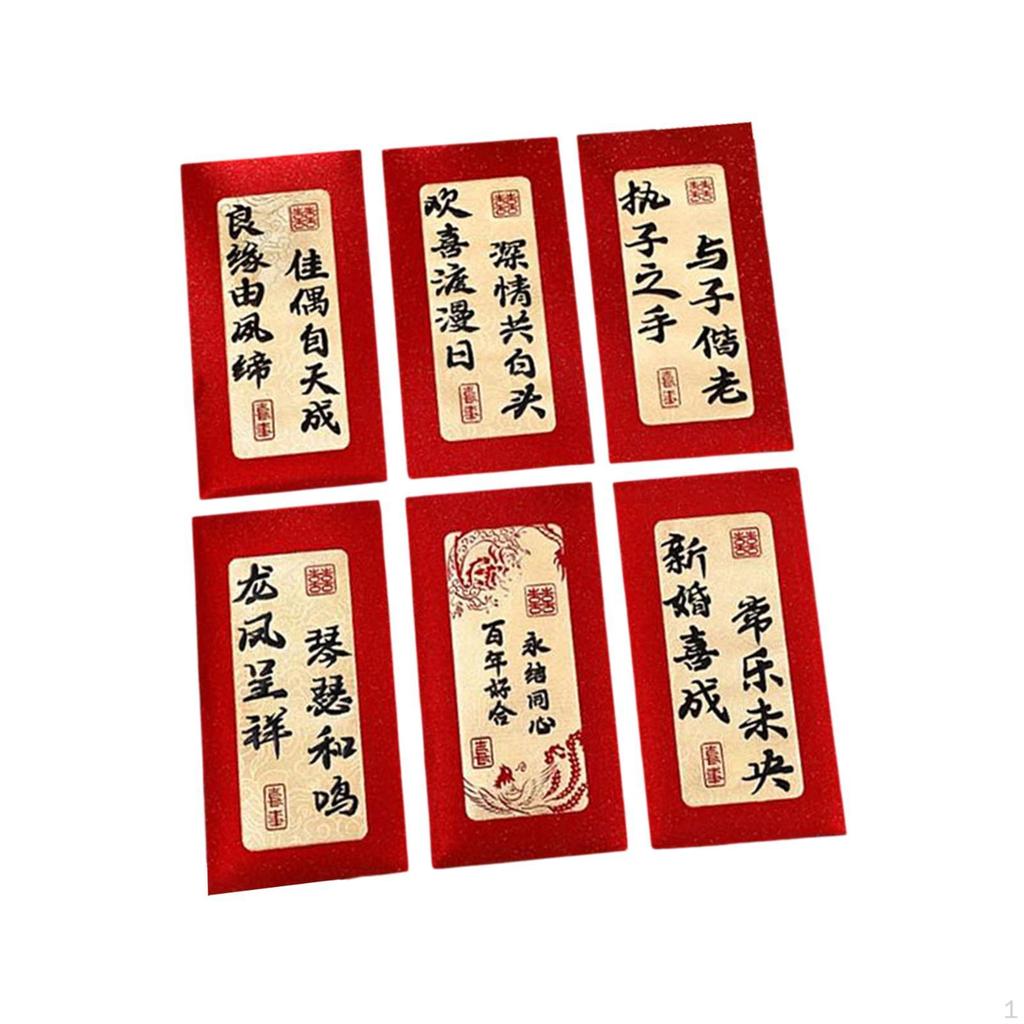 良缘由夙缔
佳偶自天成
囍
喜事
欢喜渡漫日
深情共白头
囍
喜事
执子之手
与子偕老
囍
喜事
龙凤呈祥
琴瑟和鸣
囍
喜事
百年好合
永结同心
囍
新婚喜成
常乐未央
囍
喜事
1